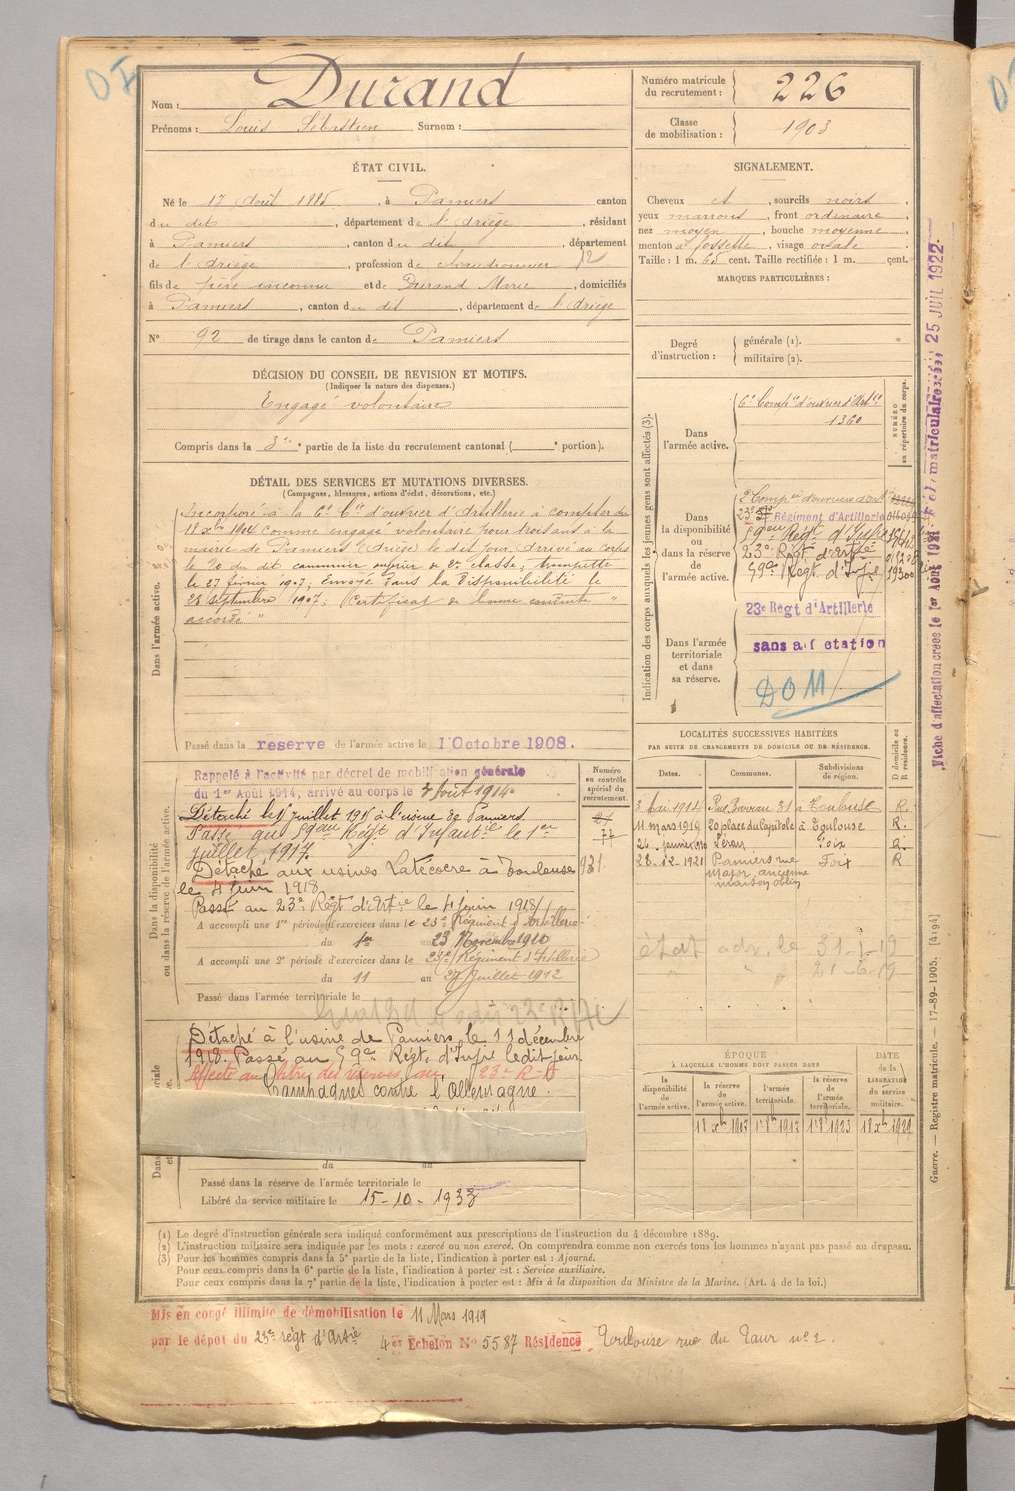 Nom : Durand
Prénoms : Louis Sébastien Surnom :
Numéro matricule du recrutement : 226
Classe de mobilisation : 1903
ÉTAT CIVIL.
Né le 17 Août 1885, à Pamiers canton
du dit, département de l'Ariège, résidant
à Pamiers, canton du dit, département
de l'Ariège, profession de chaudronnier
fils de père inconnu et de Durand Marie, domiciliés
à Pamiers, canton du dit, département de l'Ariège
N° 92 de tirage dans le canton de Pamiers
SIGNALEMENT.
Cheveux et, sourcils noirs,
yeux marrons, front ordinaire,
nez moyen, bouche moyenne,
menton à fossette, visage ovale.
Taille : 1 m. 65 cent. Taille rectifiée : 1 m. cent.
MARQUES PARTICULIÈRES :
Degré d'instruction : générale (1).
militaire (2).
DÉCISION DU CONSEIL DE REVISION ET MOTIFS.
(Indiquer la nature des dispenses.)
Engagé volontaire
Compris dans la 3e partie de la liste du recrutement cantonal ( e portion).
DÉTAIL DES SERVICES ET MUTATIONS DIVERSES.
(Campagnes, blessures, actions d'éclat, décorations, etc.)
Dans l'armée active.
Incorporé à la 6e Cie d'ouvrier d'Artillerie à compter du
18 Xbre 1904 comme engagé volontaire pour trois ans à la
mairie de Pamiers (Ariège) le dit jour. Arrivé au Corps
le 20 du dit canonnier ouvrier de 2e classe, trompette
le 27 février 1907. Envoyé dans la Disponibilité le
28 septembre 1907. Certificat de bonne conduite "
accordé "
Passé dans la réserve de l'armée active le 1 Octobre 1908.
Indication des corps auxquels les jeunes gens sont affectés (3).
NUMÉRO au répertoire du corps.
Dans l'armée active.
6e Compie d'ouvrier d'Artie
1360
Dans la disponibilité ou dans la réserve de l'armée active.
Régiment d'Artillerie
59eme Regt d'Infie
23e Regt d'Artie
59e Regt. d'Infie
23e Regt d'Artillerie
Dans l'armée territoriale et dans sa réserve.
sans affectation
DOM
Fiche d'affectation créée le 1er Août 1921
25 JUIL 1922
LOCALITÉS SUCCESSIVES HABITÉES
PAR SUITE DE CHANGEMENTS DE DOMICILE OU DE RÉSIDENCE.
Dates. Communes. Subdivisions de région. D domicile ou R résidence.
3 Mai 1914 31 à Toulouse R.
11 mars 1919 20 place du Capitole à Toulouse R.
Foix R.
28.12.1921 Pamiers rue Major, ancienne maison Foix R
état adr. le 31-1-19
" " 21-6-19
Dans la disponibilité ou dans la réserve de l'armée active.
Numéro au contrôle spécial du recrutement.
Rappelé à l'activité par décret de mobilisation générale
du 1er Août 1914, arrivé au corps le 3 Août 1914
Détaché le juillet 1915 à l'usine de Pamiers.
Passé au 59eme Régt d'Infantie le 1er
juillet 1917.
77
Détaché aux usines Latécoère à Toulouse
931
le 4 juin 1918
Passé au 23e Régt d'Artie le 4 juin 1918
A accompli une 1re période d'exercices dans le 23e Régiment d'Artillerie
du 1er au 23 Novembre 1910
A accompli une 2e période d'exercices dans le 23e Régiment d'Artillerie
du 11 au 27 Juillet 1912
Passé dans l'armée territoriale le
Détaché à l'usine de Pamiers le 11 décembre
1918. Passé au 59e Régt. d'Infie ledit jour.
Affecté au titre des réserves au 23e R-A
Campagnes contre l'Allemagne :
du au
Passé dans la réserve de l'armée territoriale le
Libéré du service militaire le 15-10-1933
ÉPOQUE
À LAQUELLE L'HOMME DOIT PASSER DANS
DATE de la LIBÉRATION du service militaire.
la disponibilité de l'armée active. la réserve de l'armée active. l'armée territoriale. la réserve de l'armée territoriale.
18 Xbre 1907 1r 8bre 1917 1r 8bre 1923 18 Xbre 1929
Guerre. — Registre matricule. — 17-89-1905. [4194]
(1) Le degré d'instruction générale sera indiqué conformément aux prescriptions de l'instruction du 4 décembre 1889.
(2) L'instruction militaire sera indiquée par les mots : exercé ou non exercé. On comprendra comme non exercés tous les hommes n'ayant pas passé au drapeau.
(3) Pour les hommes compris dans la 5e partie de la liste, l'indication à porter est : Ajourné.
Pour ceux compris dans la 6e partie de la liste, l'indication à porter est : Service auxiliaire.
Pour ceux compris dans la 7e partie de la liste, l'indication à porter est : Mis à la disposition du Ministre de la Marine. (Art. 4 de la loi.)
Mis en congé illimité de démobilisation le 11 Mars 1919
par le dépôt du 23e régt d'Artie 4er Échelon N° 5587 Résidence Toulouse rue du Taur n° 2.